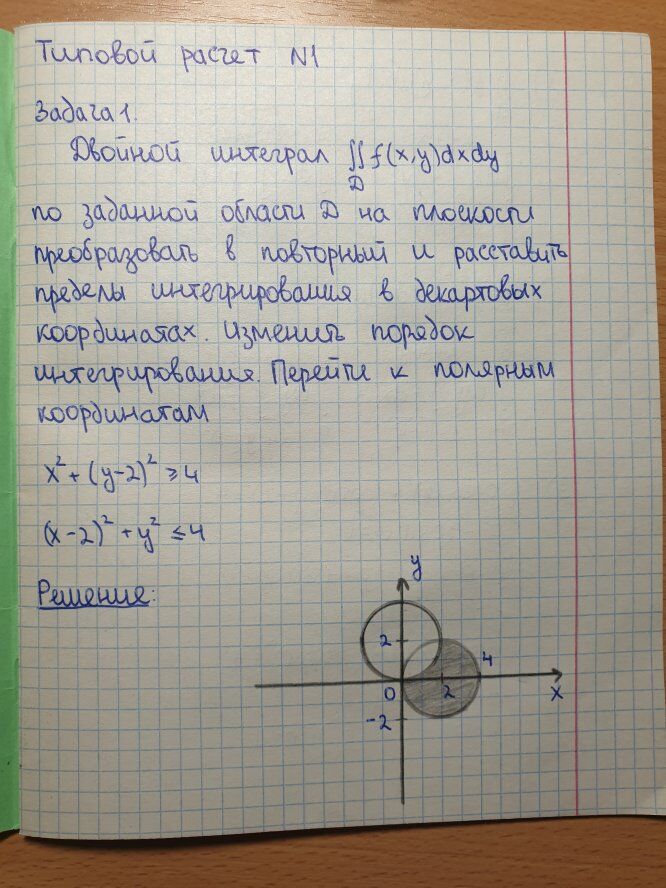 Типовой расчет N1
Задача 1.
Двойной интеграл ∬f(x,y)dxdy
D
по заданной области D на плоскости
преобразовать в повторный и расставить
пределы интегрирования в декартовых
координатах. Изменить порядок
интегрирования. Перейти к полярным
координатам
x² + (y-2)² ≥ 4
(x-2)² + y² ≤ 4
Решение:
y
2
4
0
2
x
-2